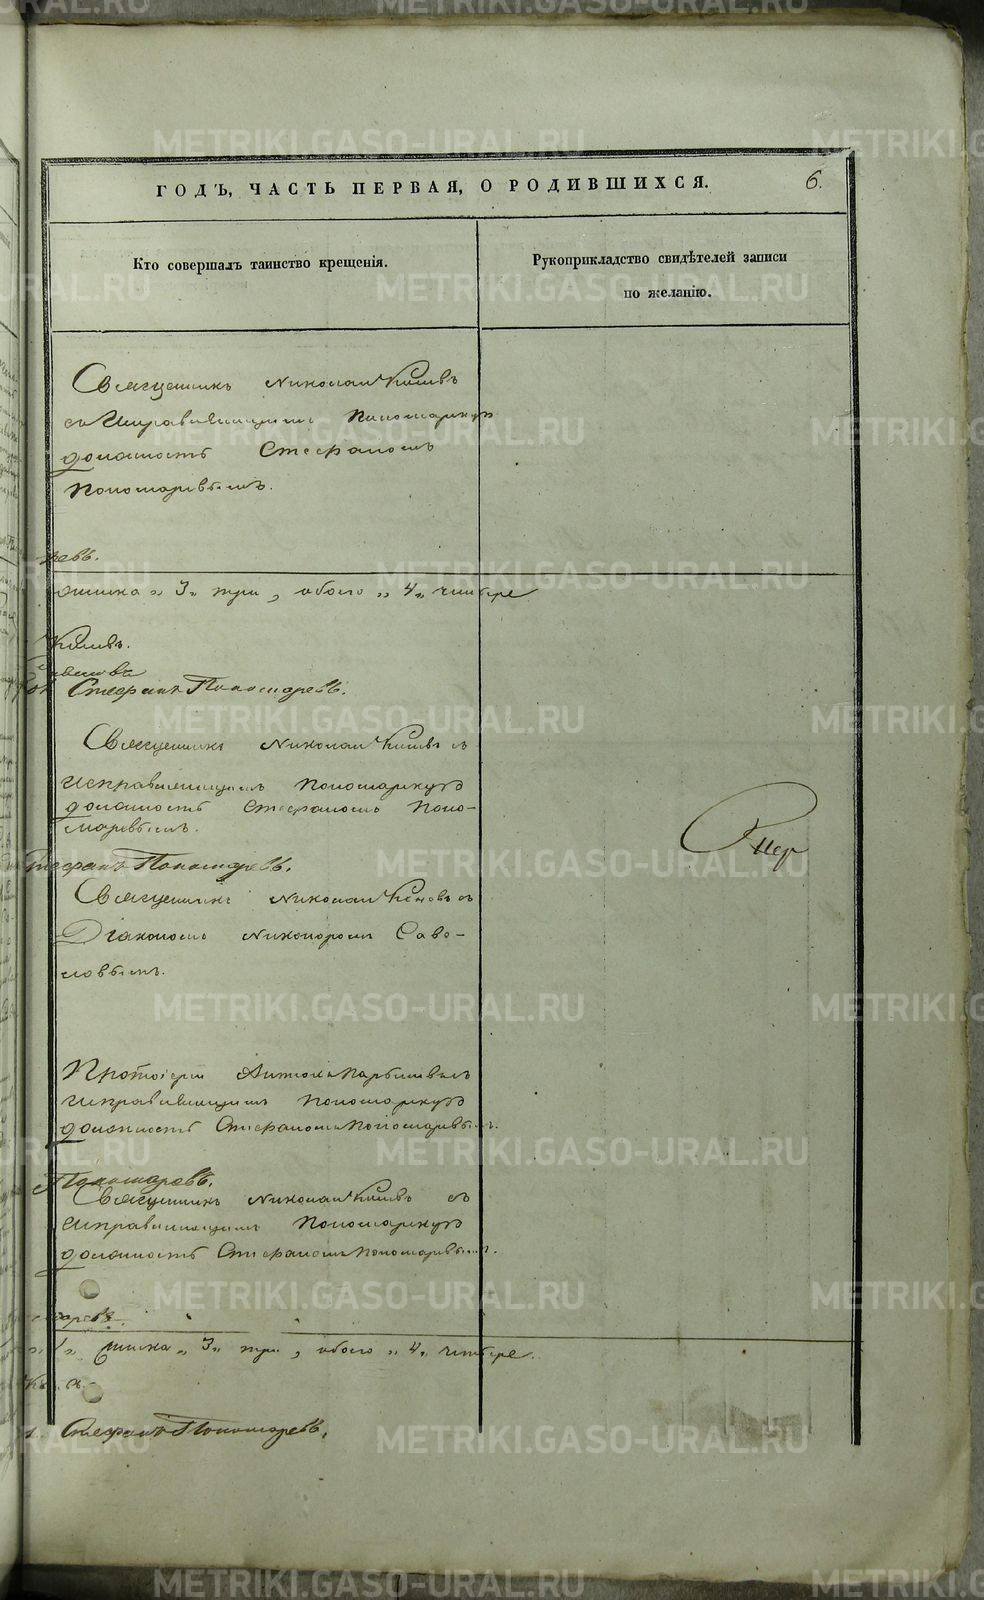 ГОДЪ, ЧАСТЬ ПЕРВАЯ, О РОДИВШИХСЯ.
6.
Кто совершалъ таинство крещенія.
Рукоприкладство свидѣтелей записи
по желанію.
Священникъ Николай
съ исправляющимъ пономарскую
должность Стефаномъ
Пономаревымъ.
ревъ.
"3" три, обоего "4" четыре
Стефанъ Пономаревъ.
Священникъ Николай съ
исправляющимъ пономарскую
должность Стефаномъ Поно-
маревымъ.
Стефанъ Пономаревъ.
Священникъ Николай съ
Діакономъ Никаноромъ Саво-
ловымъ.
Протоіерей съ
исправляющимъ пономарскую
должность Стефаномъ Пономаревымъ.
Пономаревъ.
Священникъ Николай съ
исправляющимъ пономарскую
должность Стефаномъ Пономаревымъ.
маревъ.
"3" три, обоего "4" четыре.
Стефанъ Пономаревъ.
METRIKI.GASO-URAL.RU